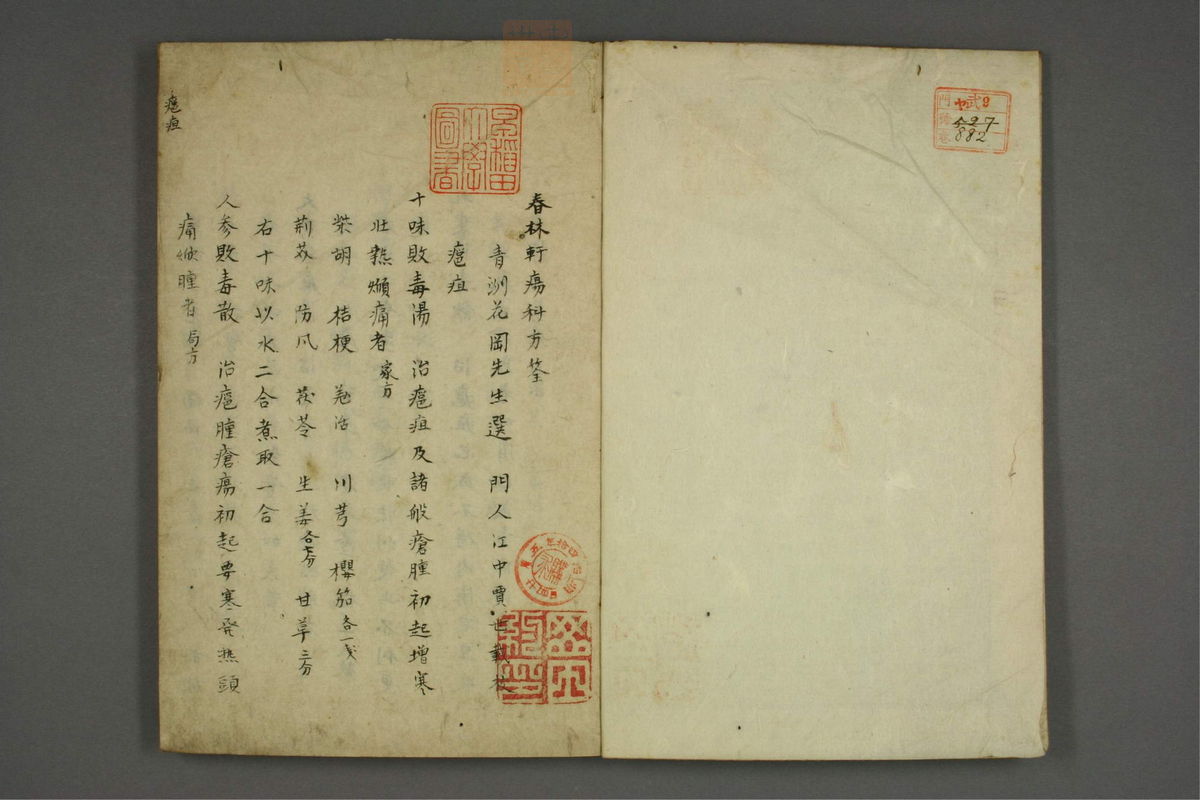 春林軒瘍科方筌
青洲花岡先生選 門人江中賈世載校
瘟疽
十味敗毒湯 治瘟疽及諸般瘡腫初起增寒
壯熱焮痛者 家方
柴胡 桔梗 羗活 川芎 櫻筎各一戔
荊芥 防風 茯苓 生姜各七分 甘草三分
右十味以水二合煮取一合
人参敗毒散 治瘟腫瘡瘍初起要寒発熱頭
痛焮腫者 局方
瘟疽
早稲田大學圖書
門
號
卷
527
882